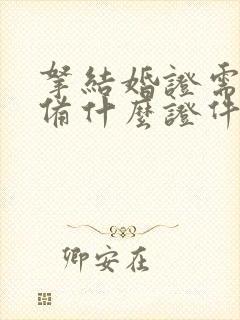 拏結婚證需
備什麼證件
卿安在